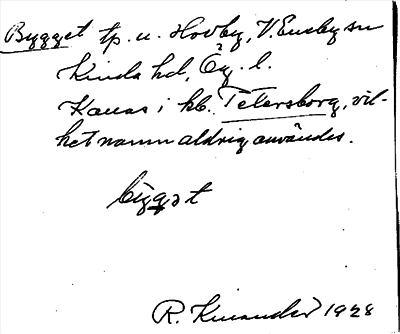 Bygget tp. u. Hovby, V. Eneby sn
Kinda hd, Ög. l.
Kallas i kb. Petersborg, vil-
ket namn aldrig användes.
bygget
R. Kinander 1928